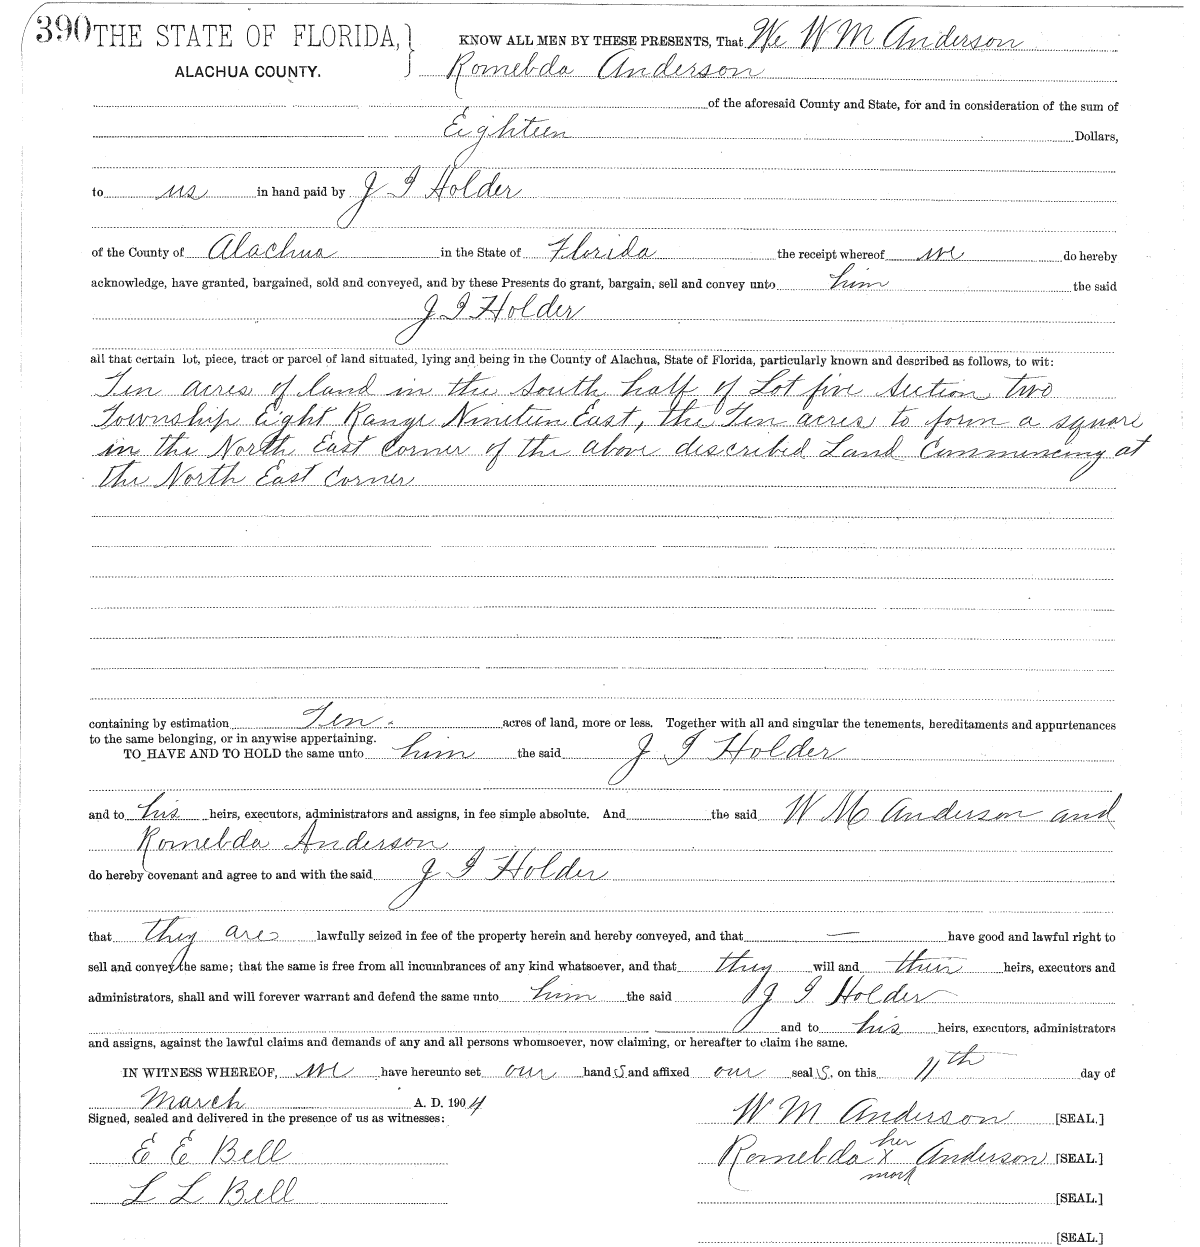 390 THE STATE OF FLORIDA, } KNOW ALL MEN BY THESE PRESENTS, That We W M Anderson
ALACHUA COUNTY. Romelda Anderson
of the aforesaid County and State, for and in consideration of the sum of
Eighteen Dollars,
to us in hand paid by J I Holder
of the County of Alachua in the State of Florida the receipt whereof we do hereby
acknowledge, have granted, bargained, sold and conveyed, and by these Presents do grant, bargain, sell and convey unto him the said
J I Holder
all that certain lot, piece, tract or parcel of land situated, lying and being in the County of Alachua, State of Florida, particularly known and described as follows, to wit:
Ten acres of land in the South half of Lot five Section two
Township Eight Range Nineteen East, the Ten acres to form a square
in the North East Corner of the above described Land Commencing at
the North East Corner
containing by estimation Ten acres of land, more or less. Together with all and singular the tenements, hereditaments and appurtenances
to the same belonging, or in anywise appertaining.
TO HAVE AND TO HOLD the same unto him the said J I Holder
and to his heirs, executors, administrators and assigns, in fee simple absolute. And the said W M Anderson and
Romelda Anderson
do hereby covenant and agree to and with the said J I Holder
that they are lawfully seized in fee of the property herein and hereby conveyed, and that — have good and lawful right to
sell and convey the same; that the same is free from all incumbrances of any kind whatsoever, and that they will and their heirs, executors and
administrators, shall and will forever warrant and defend the same unto him the said J I Holder
and to his heirs, executors, administrators
and assigns, against the lawful claims and demands of any and all persons whomsoever, now claiming, or hereafter to claim the same.
IN WITNESS WHEREOF, we have hereunto set our hands and affixed our seals, on this 11th day of
March A. D. 1904
Signed, sealed and delivered in the presence of us as witnesses: W M Anderson [SEAL.]
her
E E Bell Romelda x Anderson [SEAL.]
mark
L L Bell [SEAL.]
[SEAL.]